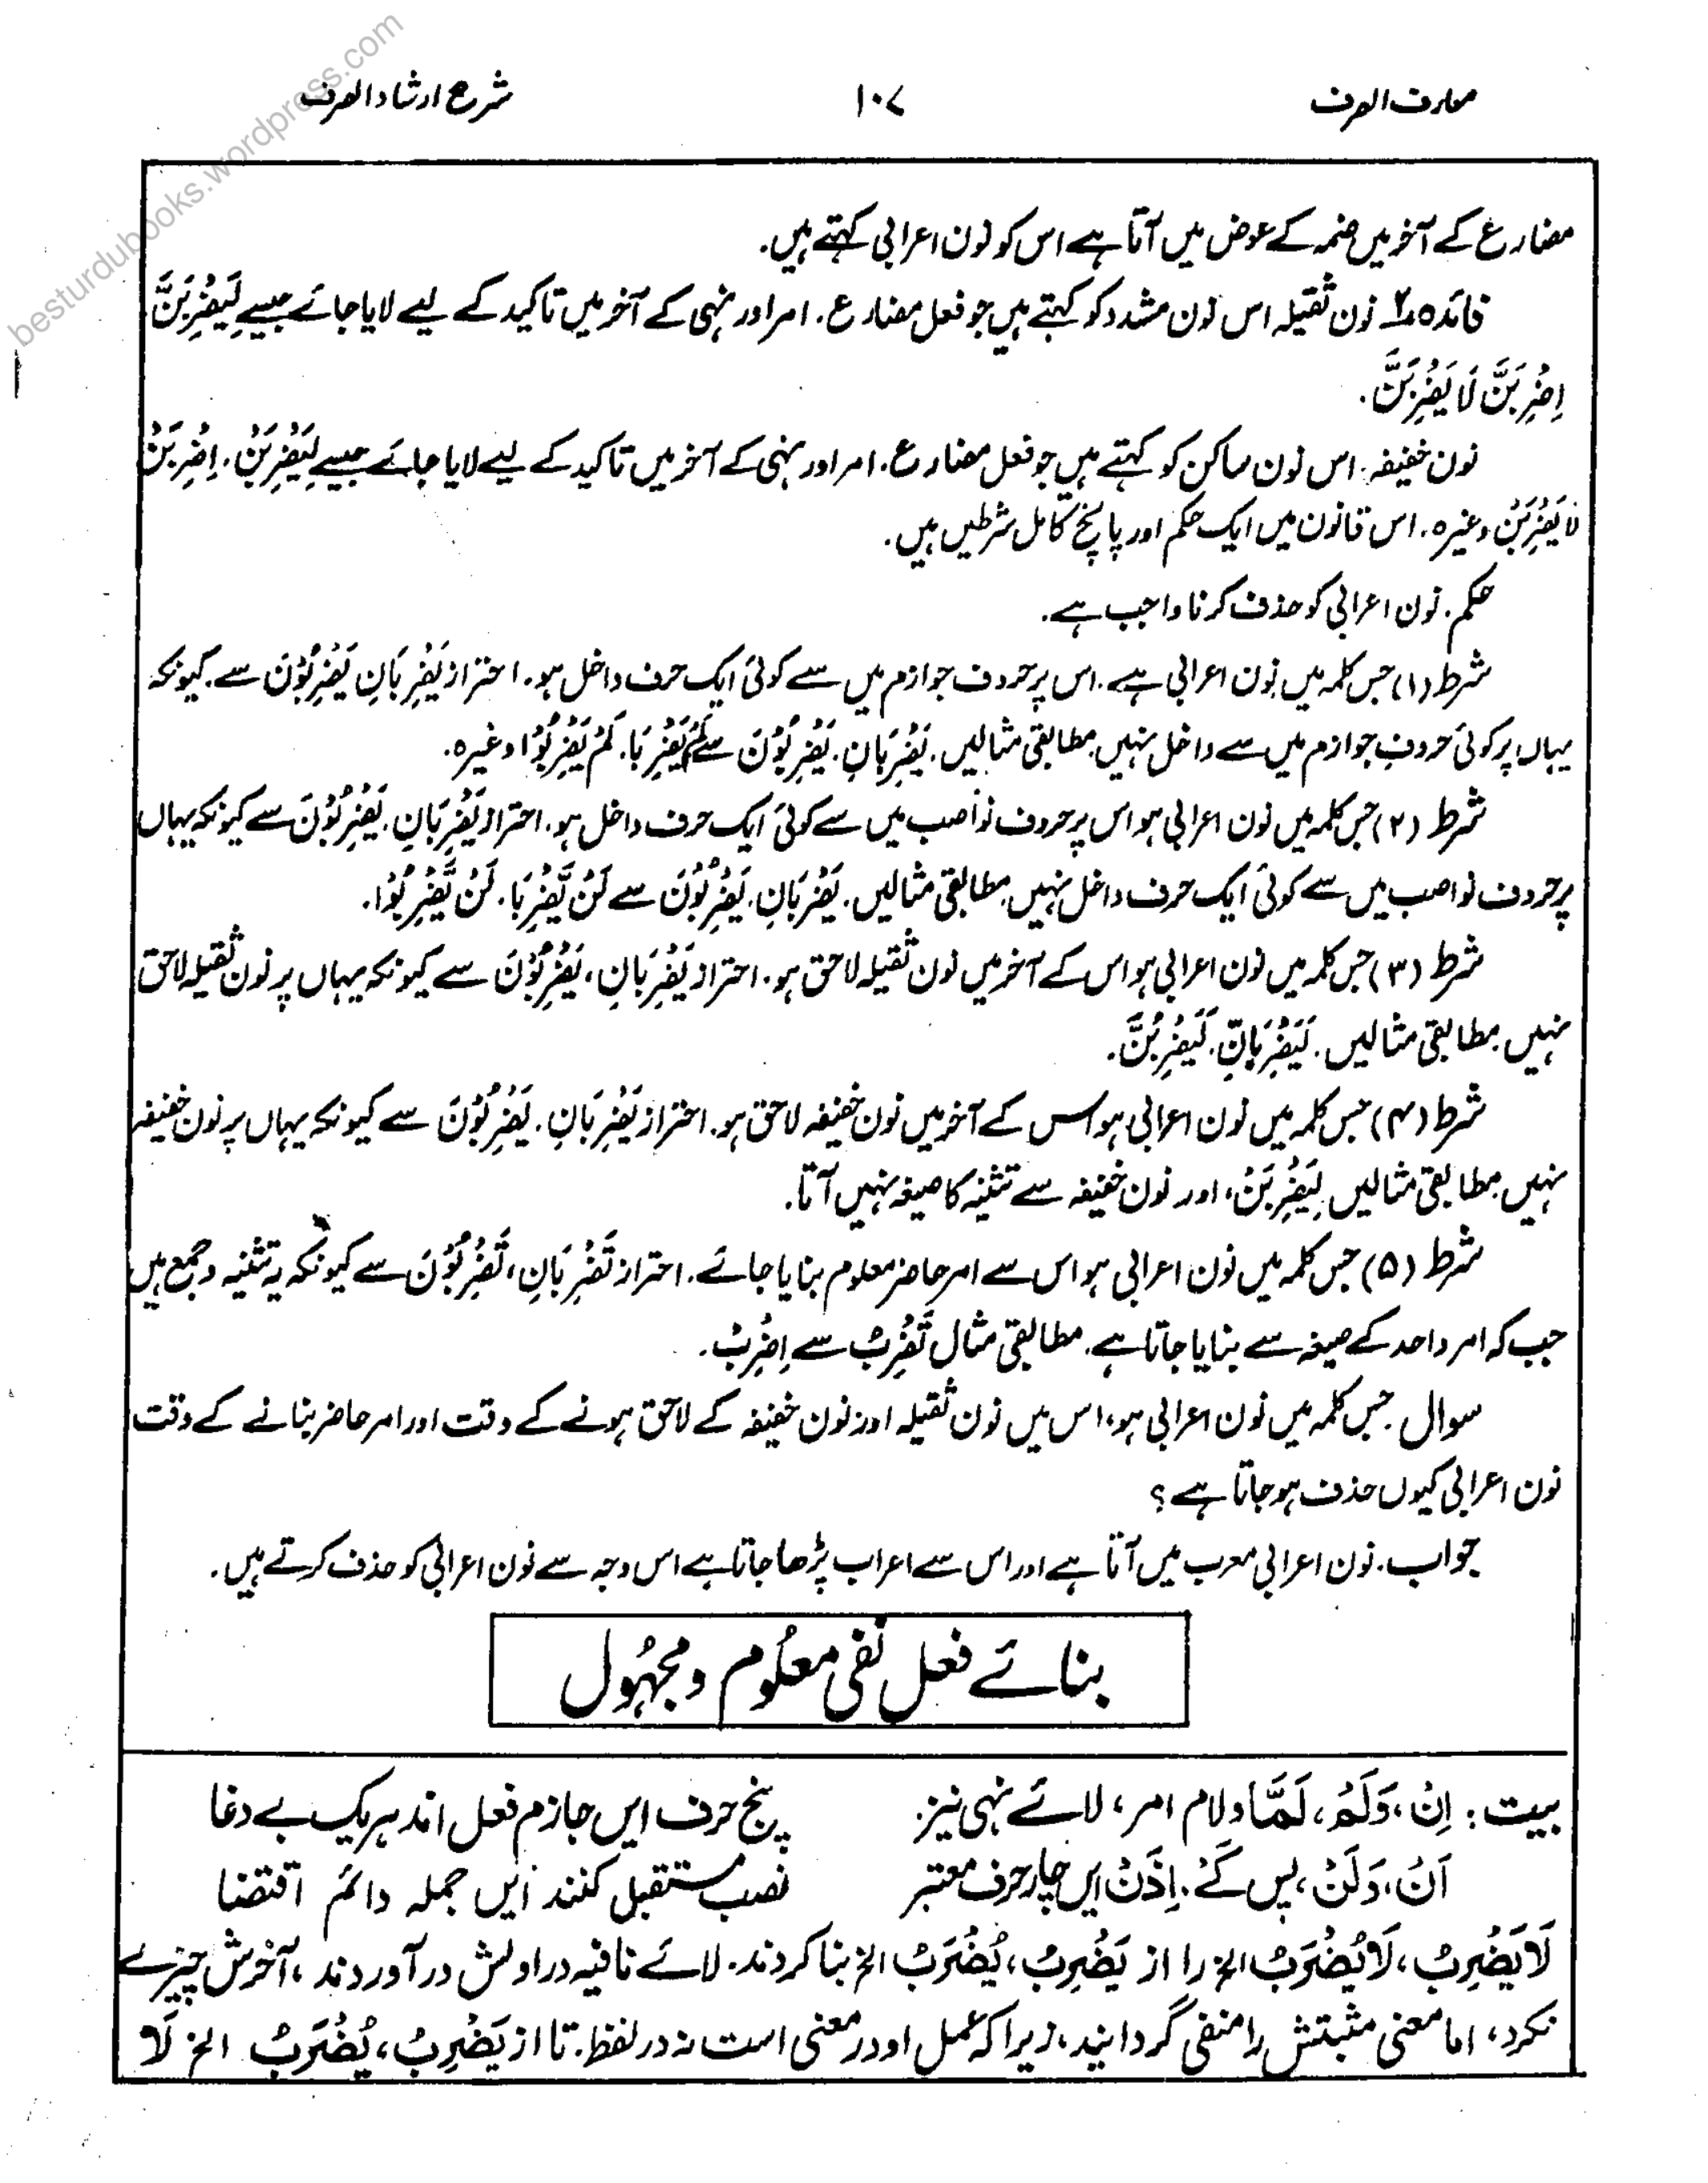 besturdubooks.wordpress.com
معارف الصرف ۱۰۷ شرح ارشاد الصرف
مضارع کے آخر میں ضمہ کے عوض میں آتا ہے اس کو نون اعرابی کہتے ہیں۔
فائدہ ۲ نون ثقیلہ اس نون مشدد کو کہتے ہیں جو فعل مضارع۔ امر اور نہی کے آخر میں تاکید کے لیے لایا جائے جیسے لَیَضْرِبَنَّ
اِضْرِبَنَّ لَا یَضْرِبَنَّ۔
نون خفیفہ۔ اس نون ساکن کو کہتے ہیں جو فعل مضارع۔ امر اور نہی کے آخر میں تاکید کے لیے لایا جائے جیسے لَیَضْرِبَنْ۔ اِضْرِبَنْ
لَا یَضْرِبَنْ وغیرہ۔ اس قانون میں ایک حکم اور پانچ کامل شرطیں ہیں۔
حکم۔ نون اعرابی کو حذف کرنا واجب ہے۔
شرط (۱) جس کلمہ میں نون اعرابی ہے۔ اس پر حروف جوازم میں سے کوئی ایک حرف داخل ہو۔ احتراز یَضْرِبَانِ یَضْرِبُوْنَ سے۔ کیونکہ
یہاں پر کوئی حروفِ جوازم میں سے داخل نہیں مطابقی مثالیں۔ یَضْرِبَانِ۔ یَضْرِبُوْنَ سے لَمْ یَضْرِبَا۔ لَمْ یَضْرِبُوْا وغیرہ۔
شرط (۲) جس کلمہ میں نون اعرابی ہو اس پر حروف نواصب میں سے کوئی ایک حرف داخل ہو۔ احتراز یَضْرِبَانِ۔ یَضْرِبُوْنَ سے کیونکہ یہاں
پر حروف نواصب میں سے کوئی ایک حرف داخل نہیں مطابقی مثالیں۔ یَضْرِبَانِ۔ یَضْرِبُوْنَ سے لَنْ یَّضْرِبَا۔ لَنْ یَّضْرِبُوْا۔
شرط (۳) جس کلمہ میں نون اعرابی ہو اس کے آخر میں نون ثقیلہ لاحق ہو۔ احتراز یَضْرِبَانِ، یَضْرِبُوْنَ سے کیونکہ یہاں پر نون ثقیلہ لاحق
نہیں مطابقی مثالیں۔ لَیَضْرِبَانِّ۔ لَیَضْرِبُنَّ۔
شرط (۴) جس کلمہ میں نون اعرابی ہو اس کے آخر میں نون خفیفہ لاحق ہو۔ احتراز یَضْرِبَانِ۔ یَضْرِبُوْنَ سے کیونکہ یہاں پر نون خفیفہ
نہیں مطابقی مثالیں لِیَضْرِبَنْ، اور نون خفیفہ سے تثنیہ کا صیغہ نہیں آتا۔
شرط (۵) جس کلمہ میں نون اعرابی ہو اس سے امر حاضر معلوم بنایا جائے۔ احتراز تَضْرِبَانِ، تَضْرِبُوْنَ سے کیونکہ یہ تثنیہ و جمع ہیں
جب کہ امر واحد کے صیغہ سے بنایا جاتا ہے۔ مطابقی مثال تَضْرِبُ سے اِضْرِبْ۔
سوال۔ جس کلمہ میں نون اعرابی ہو، اس میں نون ثقیلہ اور نون خفیفہ کے لاحق ہونے کے وقت اور امر حاضر بنانے کے وقت
نون اعرابی کیوں حذف ہو جاتا ہے؟
جواب۔ نون اعرابی معرب میں آتا ہے اور اس سے اعراب پڑھا جاتا ہے اس وجہ سے نون اعرابی کو حذف کرتے ہیں۔
بنائے فعل نفی معلُوم و مجہُول
بیت: اِنْ، وَلَمْ، لَمَّا و لام امر، لائے نہی نیز۔ پنج حرف ایں جازم فعل اند ہر یک بے دغا
اَنْ، وَلَنْ، پس کَےْ۔ اِذَنْ ایں چار حرف معتبر نصب مستقبل کنند ایں جملہ دائم اقتضا
لَا یَضْرِبُ، لَا یُضْرَبُ الخ را از یَضْرِبُ، یُضْرَبُ الخ بنا کردند۔ لائے نافیہ در اولش در آوردند، آخرش چیزے
نکرد، اما معنی مثبتش را منفی گردانید، زیرا کہ عمل او در معنی است نہ در لفظ۔ تا از یَضْرِبُ، یُضْرَبُ الخ لَا